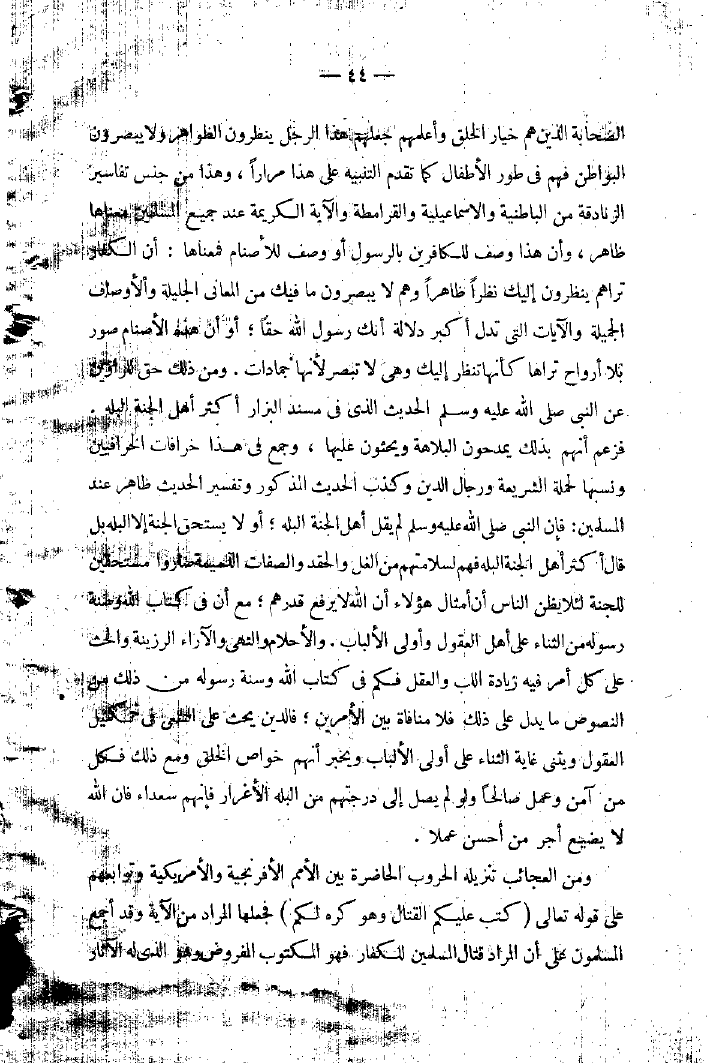 — ٤٤ —
الصحابة الذين هم خيار الخلق وأعلمهم جعلهم هذا الرجل ينظرون الظواهر ولا يبصرون
البواطن فهم فى طور الأطفال كما تقدم التنبيه على هذا مراراً ، وهذا من جنس تفاسير
الزنادقة من الباطنية والاسماعيلية والقرامطة والآية الكريمة عند جميع المسلمين معناها
ظاهر ، وأن هذا وصف للكافرين بالرسول أو وصف للأصنام فمعناها : أن الكفار
تراهم ينظرون إليك نظراً ظاهراً وهم لا يبصرون ما فيك من المعانى الجليلة والأوصاف
الجميلة والآيات التى تدل أكبر دلالة أنك رسول الله حقاً ؛ أو أن هذه الأصنام صور
بلا أرواح تراها كأنها تنظر إليك وهى لا تبصر لأنها جمادات . ومن ذلك حق للراوين
عن النبى صلى الله عليه وسلم الحديث الذى فى مسند البزار أكثر أهل الجنة البله .
فزعم أنهم بذلك يمدحون البلاهة ويحثون عليها ، وجمع فى هذا خرافات الخرافيين
ونسبها لحملة الشريعة ورجال الدين وكذب الحديث المذكور وتفسير الحديث ظاهر عند
المسلمين : فإن النبى صلى الله عليه وسلم لم يقل أهل الجنة البله ؛ أو لا يستحق الجنة إلا البله بل
قال أكثر أهل الجنة البله فهم لسلامتهم من الغل والحقد والصفات الذميمة صاروا مستحقين
للجنة لئلا يظن الناس أن أمثال هؤلاء أن الله لا يرفع قدرهم ؛ مع أن فى كتاب الله وسنة
رسوله من الثناء على أهل العقول وأولى الألباب . والأحلام والنهى والآراء الرزينة والحث
على كل أمر فيه زيادة اللب والعقل فكم فى كتاب الله وسنة رسوله من ذلك من
النصوص ما يدل على ذلك فلا منافاة بين الأمرين ؛ فالدين يحث على السعى فى تكميل
العقول ويثنى غاية الثناء على أولى الألباب ويخبر أنهم خواص الخلق ومع ذلك فكل
من آمن وعمل صالحاً ولو لم يصل إلى درجتهم من البله الأغرار فإنهم سعداء فان الله
لا يضيع أجر من أحسن عملا .
ومن العجائب تنزيله الحروب الحاضرة بين الأمم الأفرنجية والأمريكية وتوابعهم
على قوله تعالى ( كتب عليكم القتال وهو كره لكم ) فجعلها المراد من الآية وقد أجمع
المسلمون على أن المراد قتال المسلمين للكفار فهو المكتوب المفروض وهو الذى له الآثار